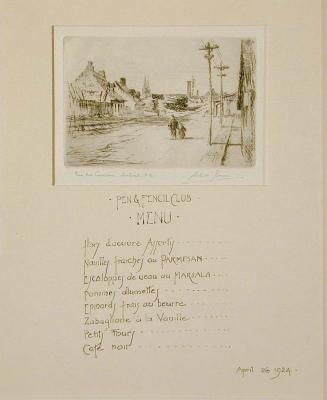 · PEN & PENCIL CLUB ·
· MENU ·
Hors d'oeuvre Assortis
Nouilles fraiches au PARMESAN
Escaloppes de veau au MARSALA
Pommes allumettes
Epinards frais au beurre
Zabaglione à la Vanille
Petits Fours
Café noir
April 26 1924.